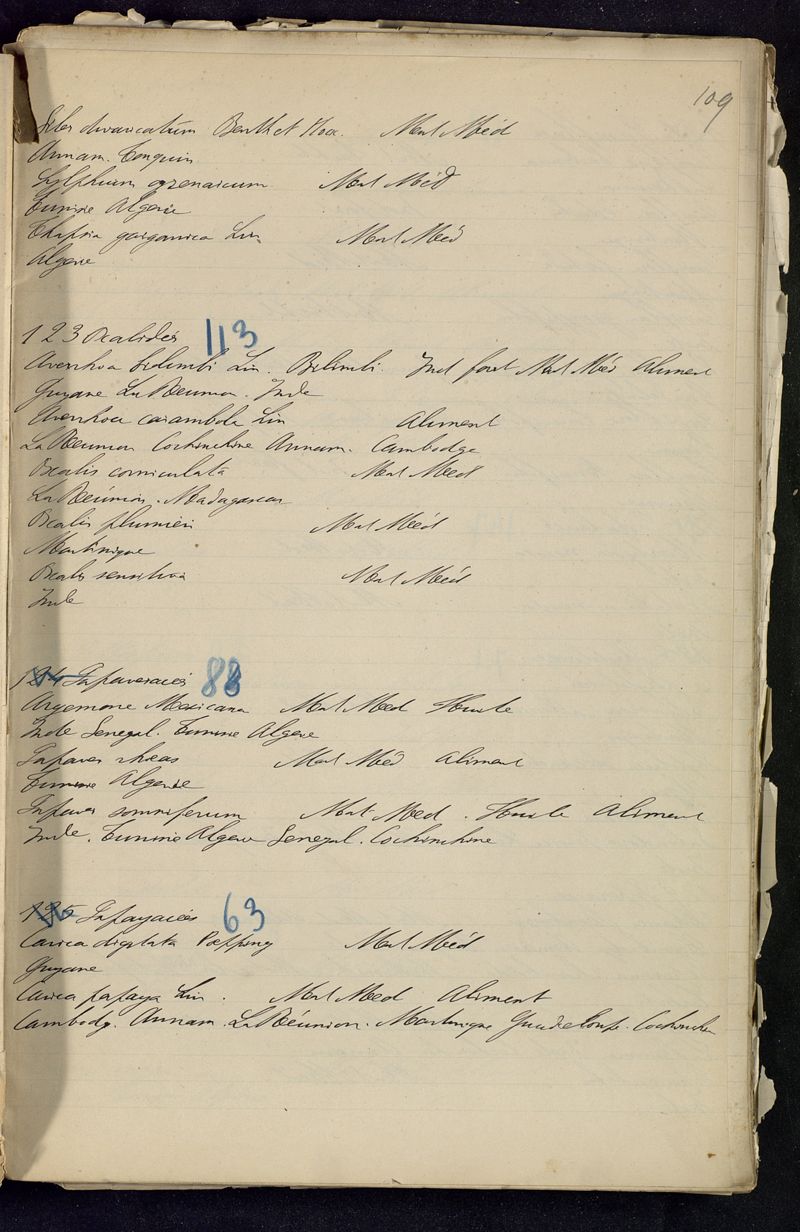 109
Siler divaricatum Benth et Hoo. Mat Méd
Annam. Tonquin
Sylphium cyrenaicum Mat Méd
Tunisie Algerie
Thapsia garganica Lin Mat Méd
Algerie
123 Oxalidés 113
Averrhoa Bilimbi Lin. Bilimbi. Ind forest Mat Méd Aliment
Guyane La Reunion. Inde
Averrhoa carambola Lin Aliment
La Reunion Cochinchine Annam. Cambodge
Oxalis corniculata Mat Med
La Reunion. Madagascar
Oxalis plumieri Mat Méd
Martinique
Oxalis sensitiva Mat Méd
Inde
124 Papaveracées 88
Argemone Mexicana Mat Med Huile
Inde Senegal. Tunisie Algerie
Papaver rheas Mat Méd Aliment
Tunisie Algerie
Papaver somniferum Mat Med. Huile Aliment
Inde. Tunisie Algerie Senegal. Cochinchine
125 Papayacées 63
Carica digitata Pœpping Mat Méd
Guyane
Carica papaya Lin. Mat Med Aliment
Cambodg. Annam. La Réunion. Martinique Guadeloupe. Cochinchin